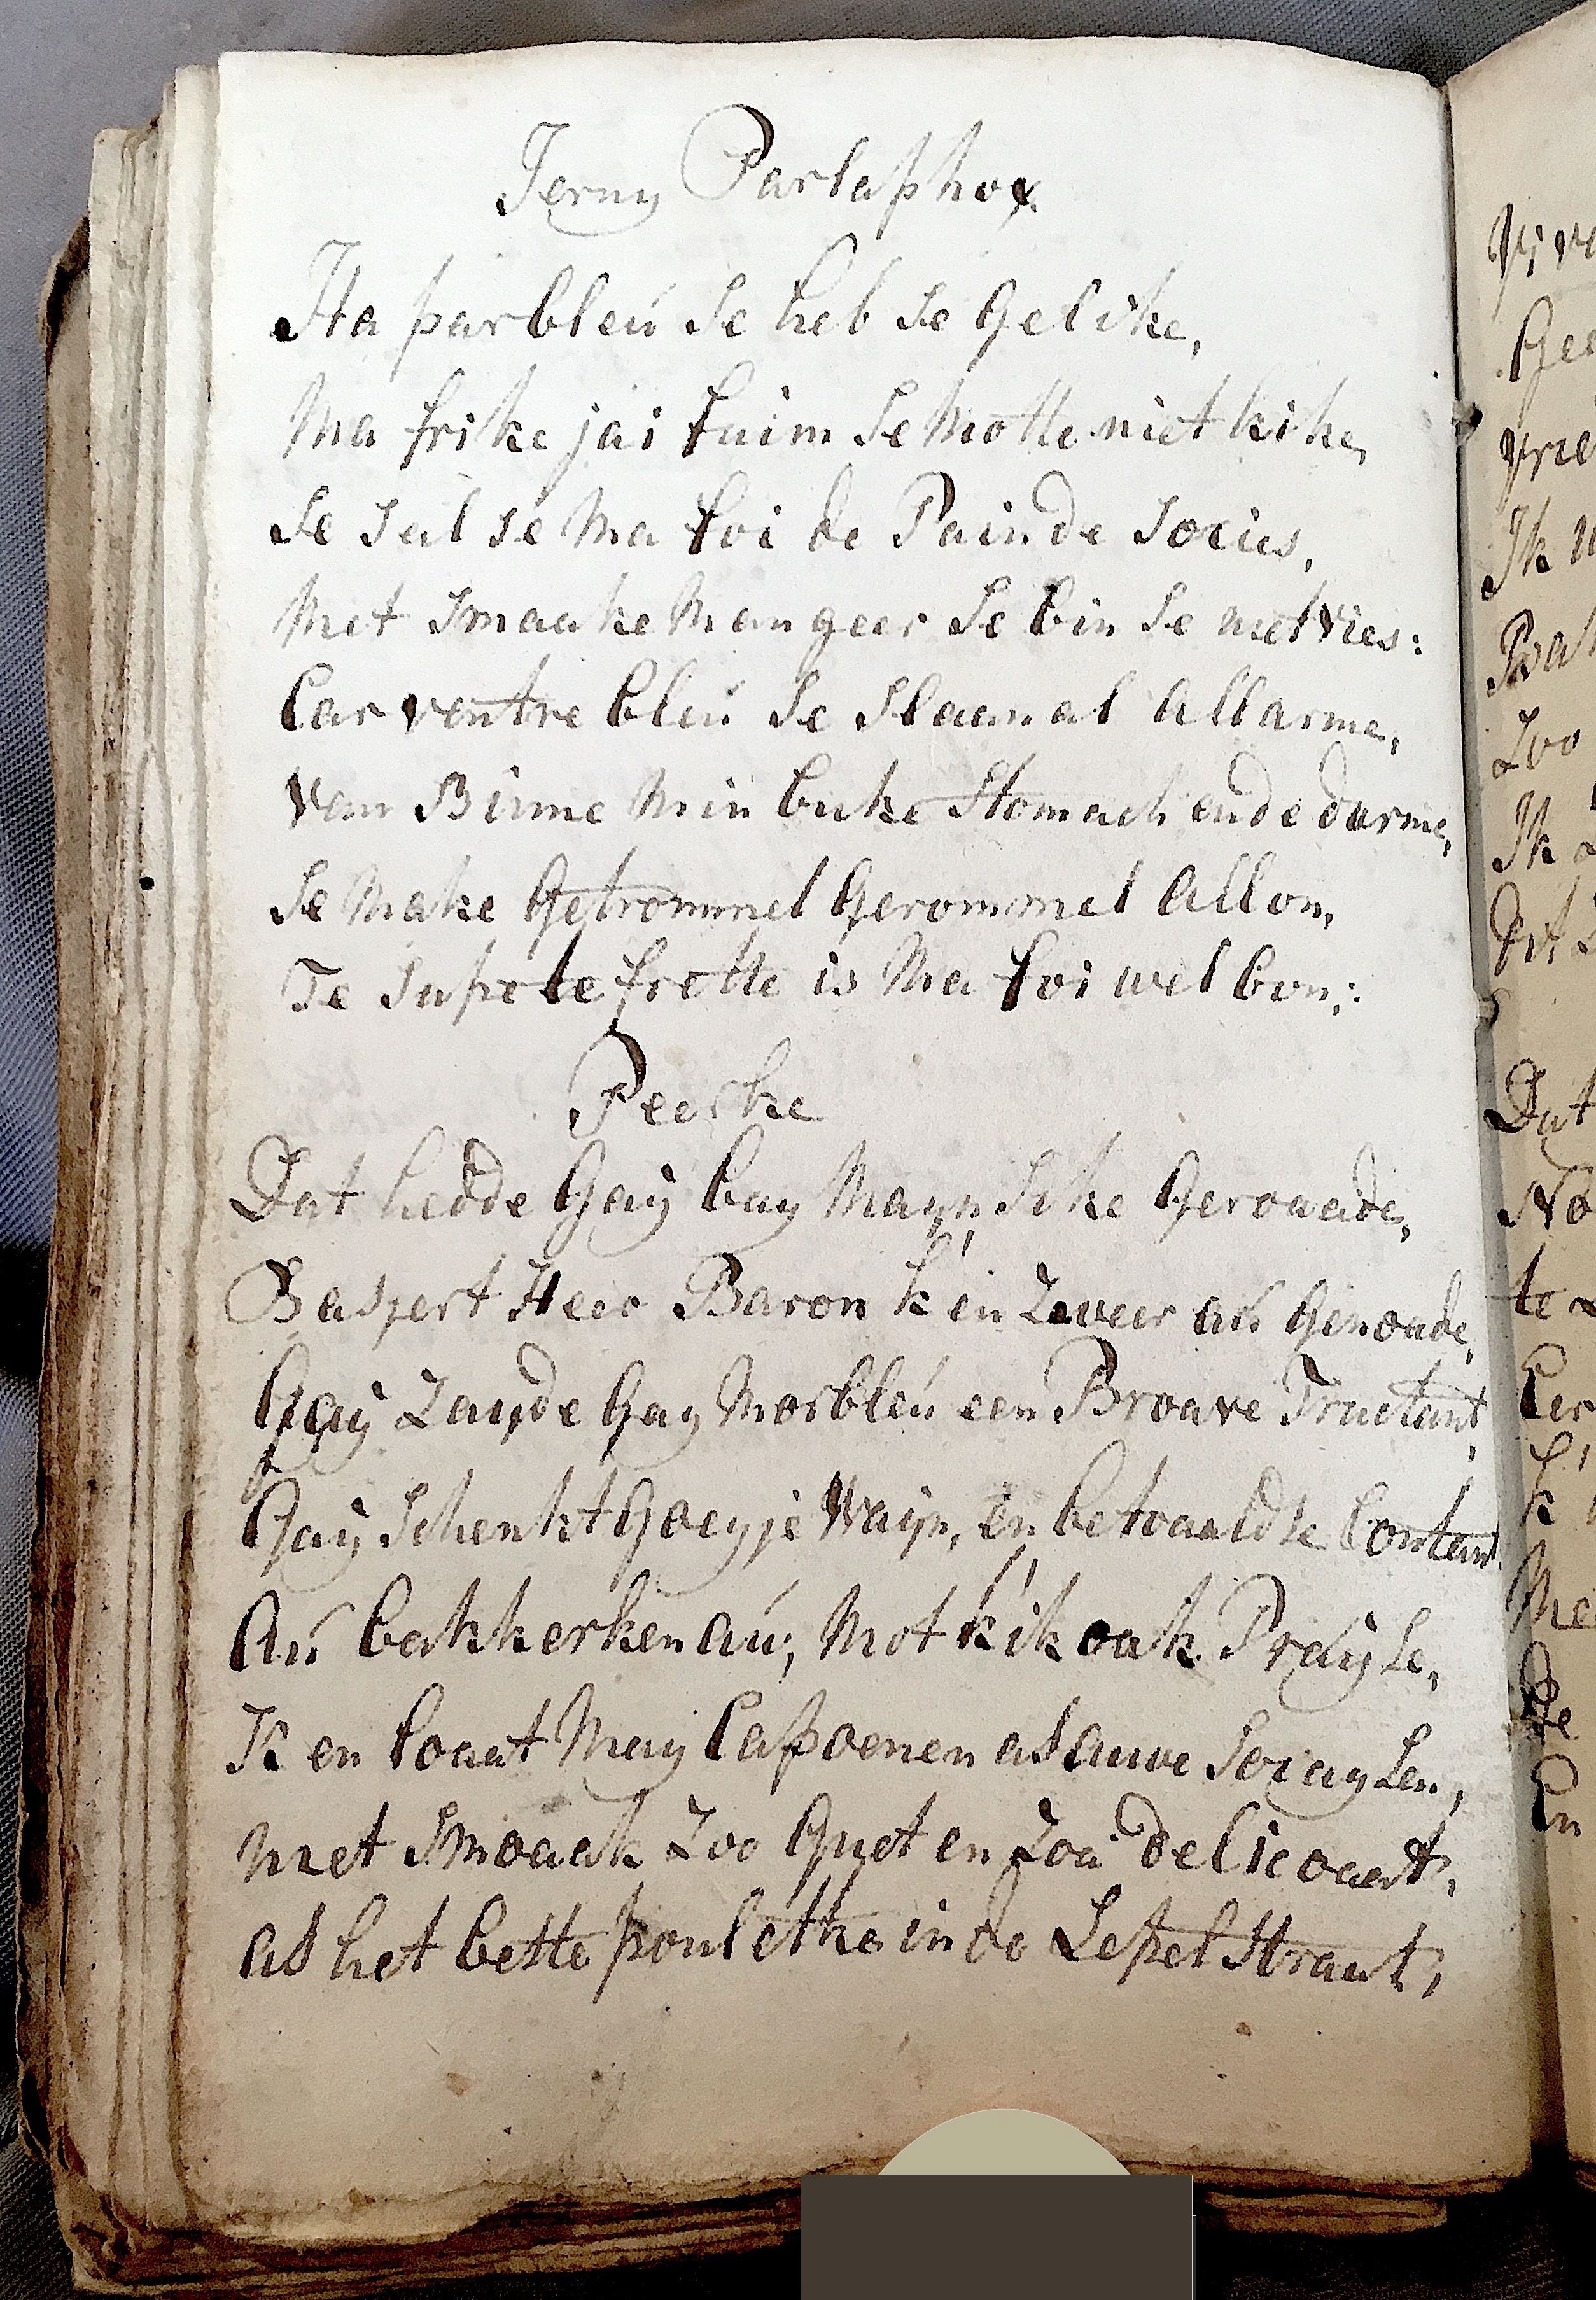 Jerny Parlaphox
Ha parbleú Se heb se Gelike,
Ma frike jai faim Se Motte niet kike,
Se Sal se Ma foi de Pain de Socies,
Met Smaake Mangeer Se bin Se niet vies:
Car ventre bleú Se Slaan al Allarme,
Van Binne Min buke Stomach ende darme,
Se Make Getrommel Gerommel Allon,
Te Supe te frette is Ma foi wel bon;:
Peerke
Dat hedde Gaij bay Mayn Sike Geroaade,
Baspert Heer Baron k'en Zeveer aú Genoade,
Gaij Zayde Gay Morbleú een Broave Tractant,
Gaij Schenkt Goeyje Wayn, en betoaaldt Contant
Aú bakkerken aú; Mot k'ik oak Prayse,
K en loaat Maij Capoenen as auwe Socaysen,
met Smoaak Zoo Goet en Zoo delicoaat,
as het bette poulétke in de Lepelstraat,
Gee
Ik
Zoo
Ik
Dat
No
te
k
Me
De
En